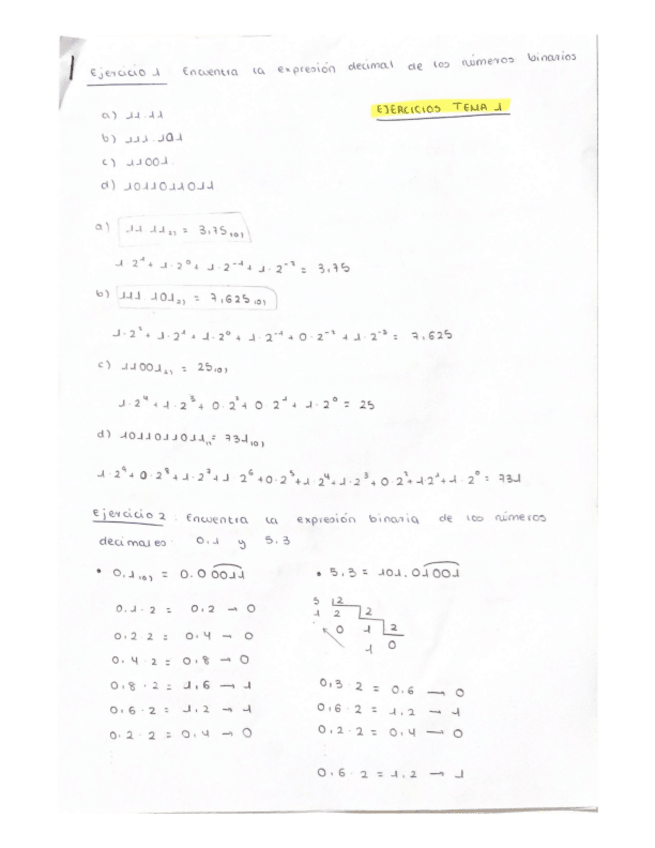 Ejercicio 1 : Encuentra la expresión decimal de los números binarios
EJERCICIOS TEMA 1
a) 11.11
b) 111.101
c) 11001.
d) 1011011011
a) 11.11₂₎ = 3,75₁₀₎
1·2¹ + 1·2⁰ + 1·2⁻¹ + 1·2⁻² = 3,75
b) 111.101₂₎ = 7,625₁₀₎
1·2² + 1·2¹ + 1·2⁰ + 1·2⁻¹ + 0·2⁻² + 1·2⁻³ = 7,625
c) 11001₂₎ = 25₁₀₎
1·2⁴ + 1·2³ + 0·2² + 0 2¹ + 1·2⁰ = 25
d) 1011011011₂₎ = 731₁₀₎
1·2⁹ + 0·2⁸ + 1·2⁷ + 1 2⁶ + 0·2⁵ + 1·2⁴ + 1·2³ + 0·2² + 1·2¹ + 1·2⁰ = 731
Ejercicio 2 : Encuentra la expresión binaria de los números
decimales: 0.1 y 5.3
• 0,1₁₀₎ = 0.00011
0.1·2 = 0.2 → 0
0.2 2 = 0.4 → 0
0.4·2 = 0.8 → 0
0.8·2 = 1,6 → 1
0.6·2 = 1,2 → 1
0.2·2 = 0.4 → 0
• 5,3 = 101.01001
5 2
1 2 2
0 1 2
1 0
0,3·2 = 0.6 → 0
0,6·2 = 1,2 → 1
0,2·2 = 0,4 → 0
0,6·2 = 1,2 → 1